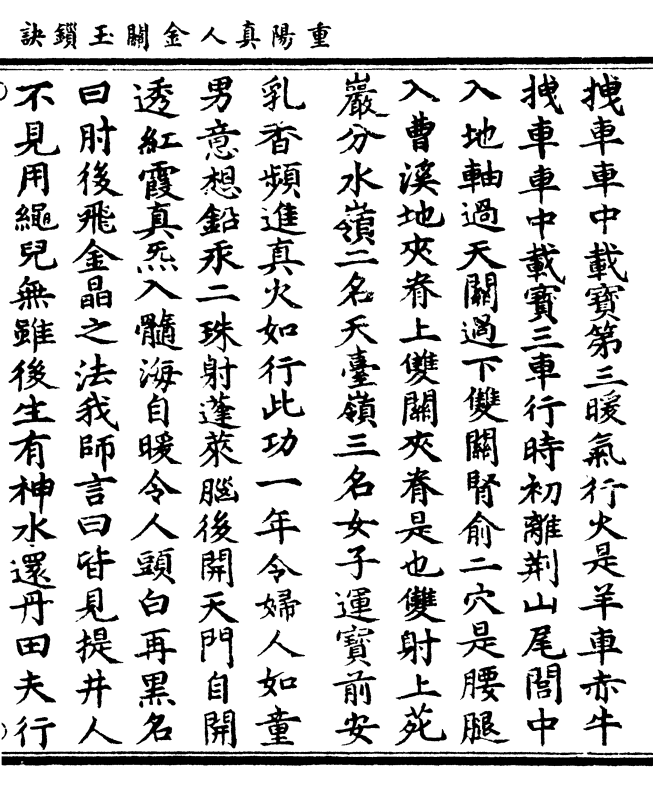 重陽真人金關玉鎖訣
拽車車中載寶第三暖氣行火是羊車赤牛
拽車車中載寶三車行時初離荆山尾閭中
入地軸過天關過下雙關腎俞二穴是腰腿
入曹溪地夾脊上雙關夾脊是也雙射上苑
巖分水嶺二名天臺嶺三名女子運寶前安
乳香頻進真火如行此功一年令婦人如童
男意想鉛汞二珠射蓬萊腦後開天門自開
透紅霞真炁入髓海自暖令人頭白再黑名
曰肘後飛金晶之法我師言曰皆見提井人
不見用繩兒無雖後生有神水還丹田夫行